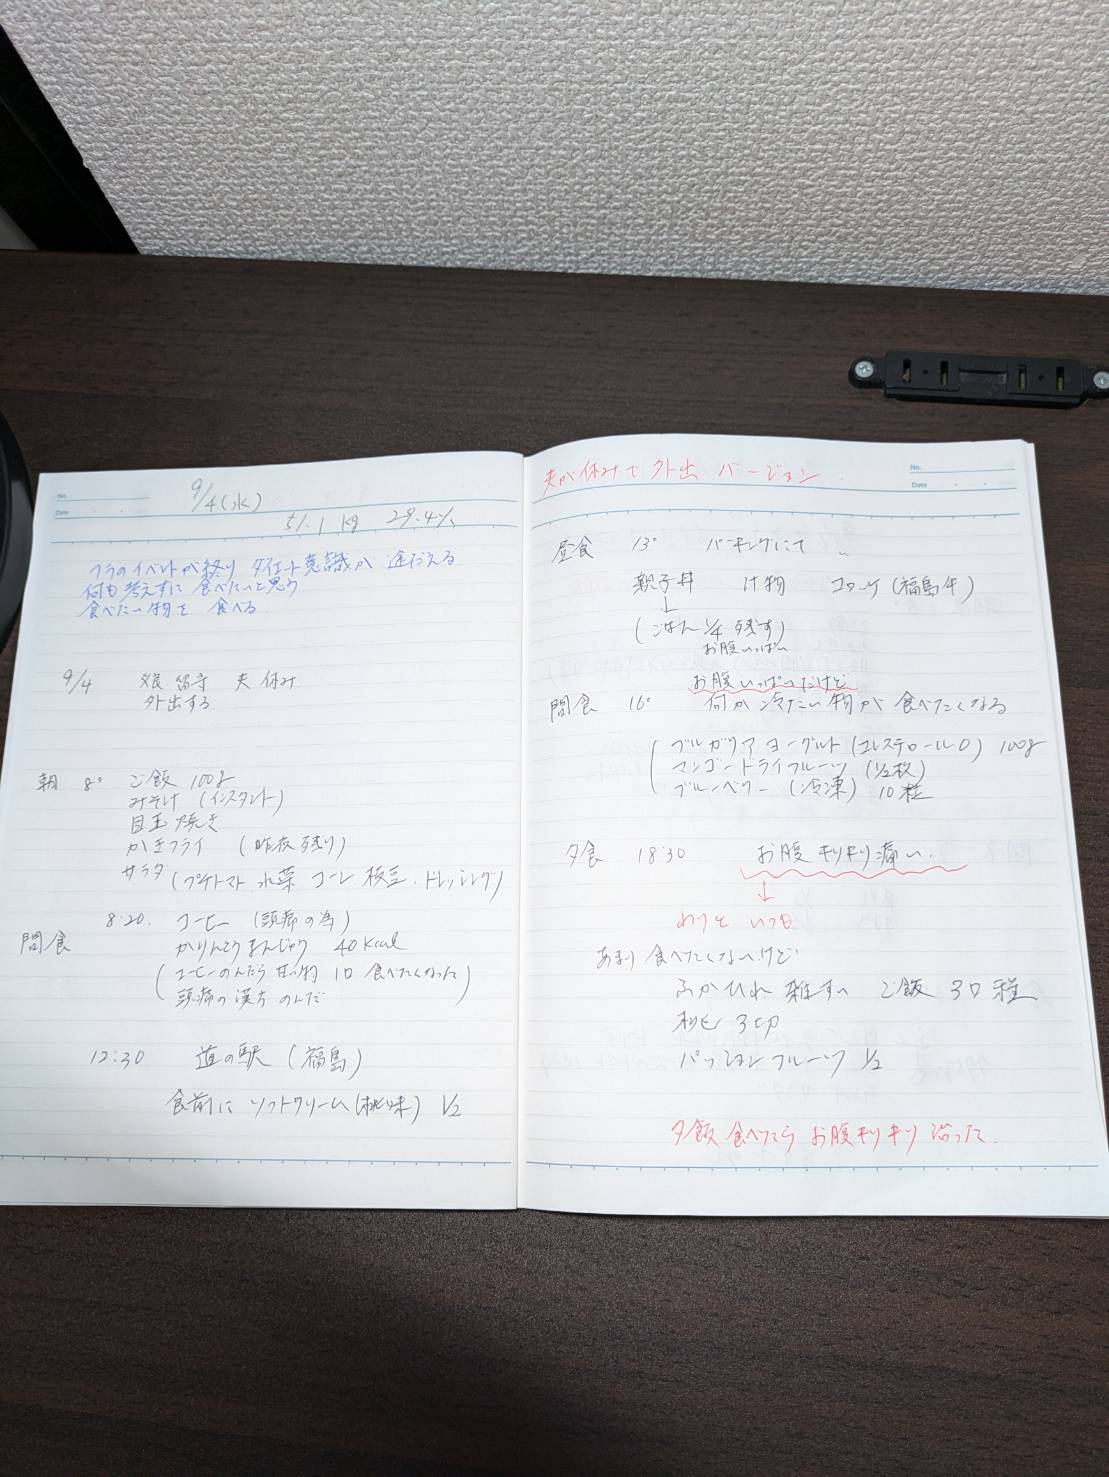 No.
Date
9/4(水)
51.1 kg 29.4%
フラのイベントが終り ダイエット意識が 途だえる
何も考えずに 食べたいと思う
食べたい物を 食べる
9/4 娘 留守 夫 休み
外出する
朝 8° ご飯 100g
みそ汁 (インスタント)
目玉焼き
かきフライ (昨夜 残り)
サラダ (プチトマト 水菜 コーン 枝豆 . ドレッシング)
8:20. コーヒー (頭痛の為)
間食 かりんとうまんじゅう 40kcal
(コーヒーのんだら 甘い物 1口 食べたくなった)
頭痛の漢方 のんだ
12:30 道の駅 (福島)
食前に ソフトクリーム (桃味) 1/2
夫が休みで 外出 バージョン
No.
Date
昼食 13° パーキングにて
親子丼 汁物 コロッケ (福島牛)
↓
(ごはん 1/4 残す)
お腹いっぱい
お腹いっぱいだけど
間食 16° 何か 冷たい物が 食べたくなる
(ブルガリア ヨーグルト (コレステロール0) 100g
マンゴードライフルーツ (1/2枚)
ブルーベリー (冷凍) 10粒
夕食 18:30 お腹 キリキリ 痛い.
↓
わりと いつも
あまり 食べたくないけど
ふかひれ 雑すい ご飯 3口 程
桃 3切
パッションフルーツ 1/2
夕飯 食べてから お腹キリキリ 治った.